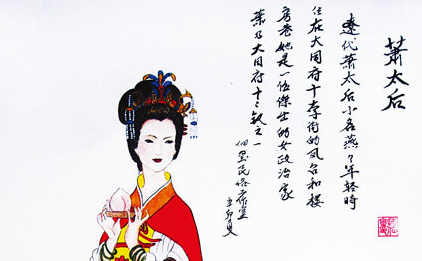 萧太后
辽代萧太后小名燕了年轻时
住在大同府十李街的凤台和楼
房巷她是一位杰出的女政治家
萧乃大同府十二钗之一
民俗
辛卯夏